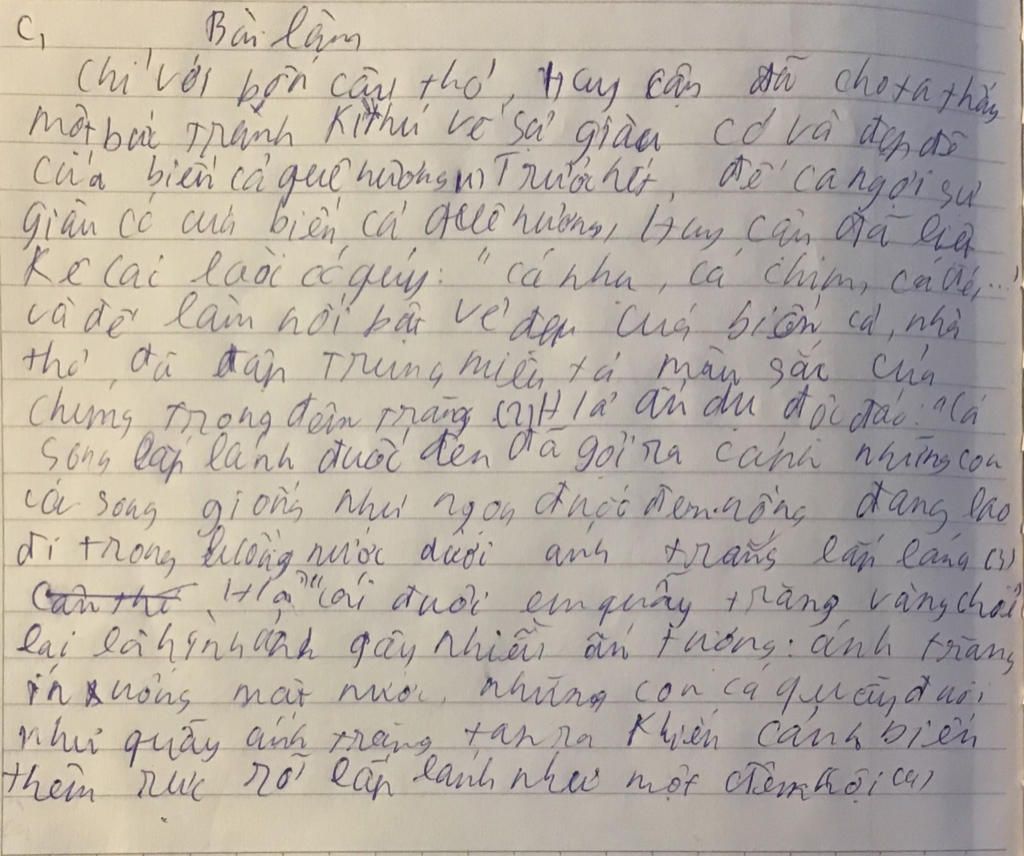 C, Bài làm
Chỉ với bốn câu thơ, Huy cận đã cho ta thấy
một bức tranh Kì thú về sự giàu có và đẹp đẽ
của biển cả quê hương (1) Trước hết, để ca ngợi sự
giàu có của biển cả quê hương, Huy Cận đã liệt
Kê cái loài cá quý: "cá nhụ, cá chim, cá đé,..."
và để làm nổi bật vẻ đẹp của biển cả, nhà
thơ, đã tập trung miêu tả màu sắc của
chúng trong đêm trăng (2) H/a ẩn dụ độc đáo: "Cá
song lấp lánh đuốc đen đã gợi ra cảnh những con
cá song giống như ngọn đuốc đen hồng đang lao
đi trong luồng nước dưới ánh trăng lấp láng (3)
H/a "cái đuôi em quẫy trăng vàng choé
lại là hình ảnh gây nhiều ấn tượng: ánh trăng
in xuống mặt nước, những con cá quẫy đuôi
như quẫy ánh trăng tan ra khiến cảnh biển
thêm rực rỡ lấp lánh như một đêm hội (4)